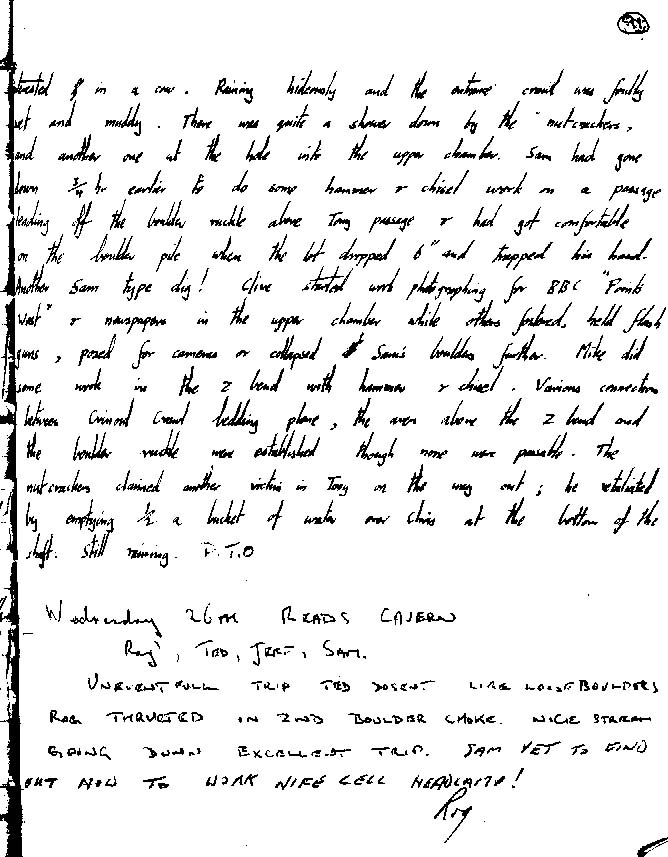 in a cow. Raining hideously and the entrance crawl was foully
wet and muddy. There was quite a shower down by the nutcrackers,
and another one at the hole into the upper chamber. Sam had gone
down 3/4 hr earlier to do some hammer & chisel work on a passage
leading off the boulder ruckle above Tony passage & had got comfortable
on the boulder pile when the lot dropped 6" and trapped his hand.
Another Sam type dig! Clive started work photographing for BBC "Points
West" & newspapers in the upper chamber while others held flash
guns, posed for cameras or collapsed Sam's boulders further. Mike did
some work in the Z bend with hammer & chisel. Various connections
between Crinoid Crawl bedding plane, the aven above the Z bend and
the boulder ruckle were established though none were passable. The
nutcrackers claimed another victim in Tony on the way out; he retaliated
by emptying 1/2 a bucket of water over Chris at the bottom of the
shaft. Still raining. P.T.O
Wednesday 26th READS CAVERN
Rog, TED, JEFF, SAM.
UNEVENTFULL TRIP TED DOSENT LIKE LOOSE BOULDERS
ROG THRUTCHED IN 2ND BOULDER CHOKE. NICE STREAM
GOING DOWN EXCELLENT TRIP. SAM YET TO FIND
OUT HOW TO WORK NIFE CELL HEADLAMP!
Rog